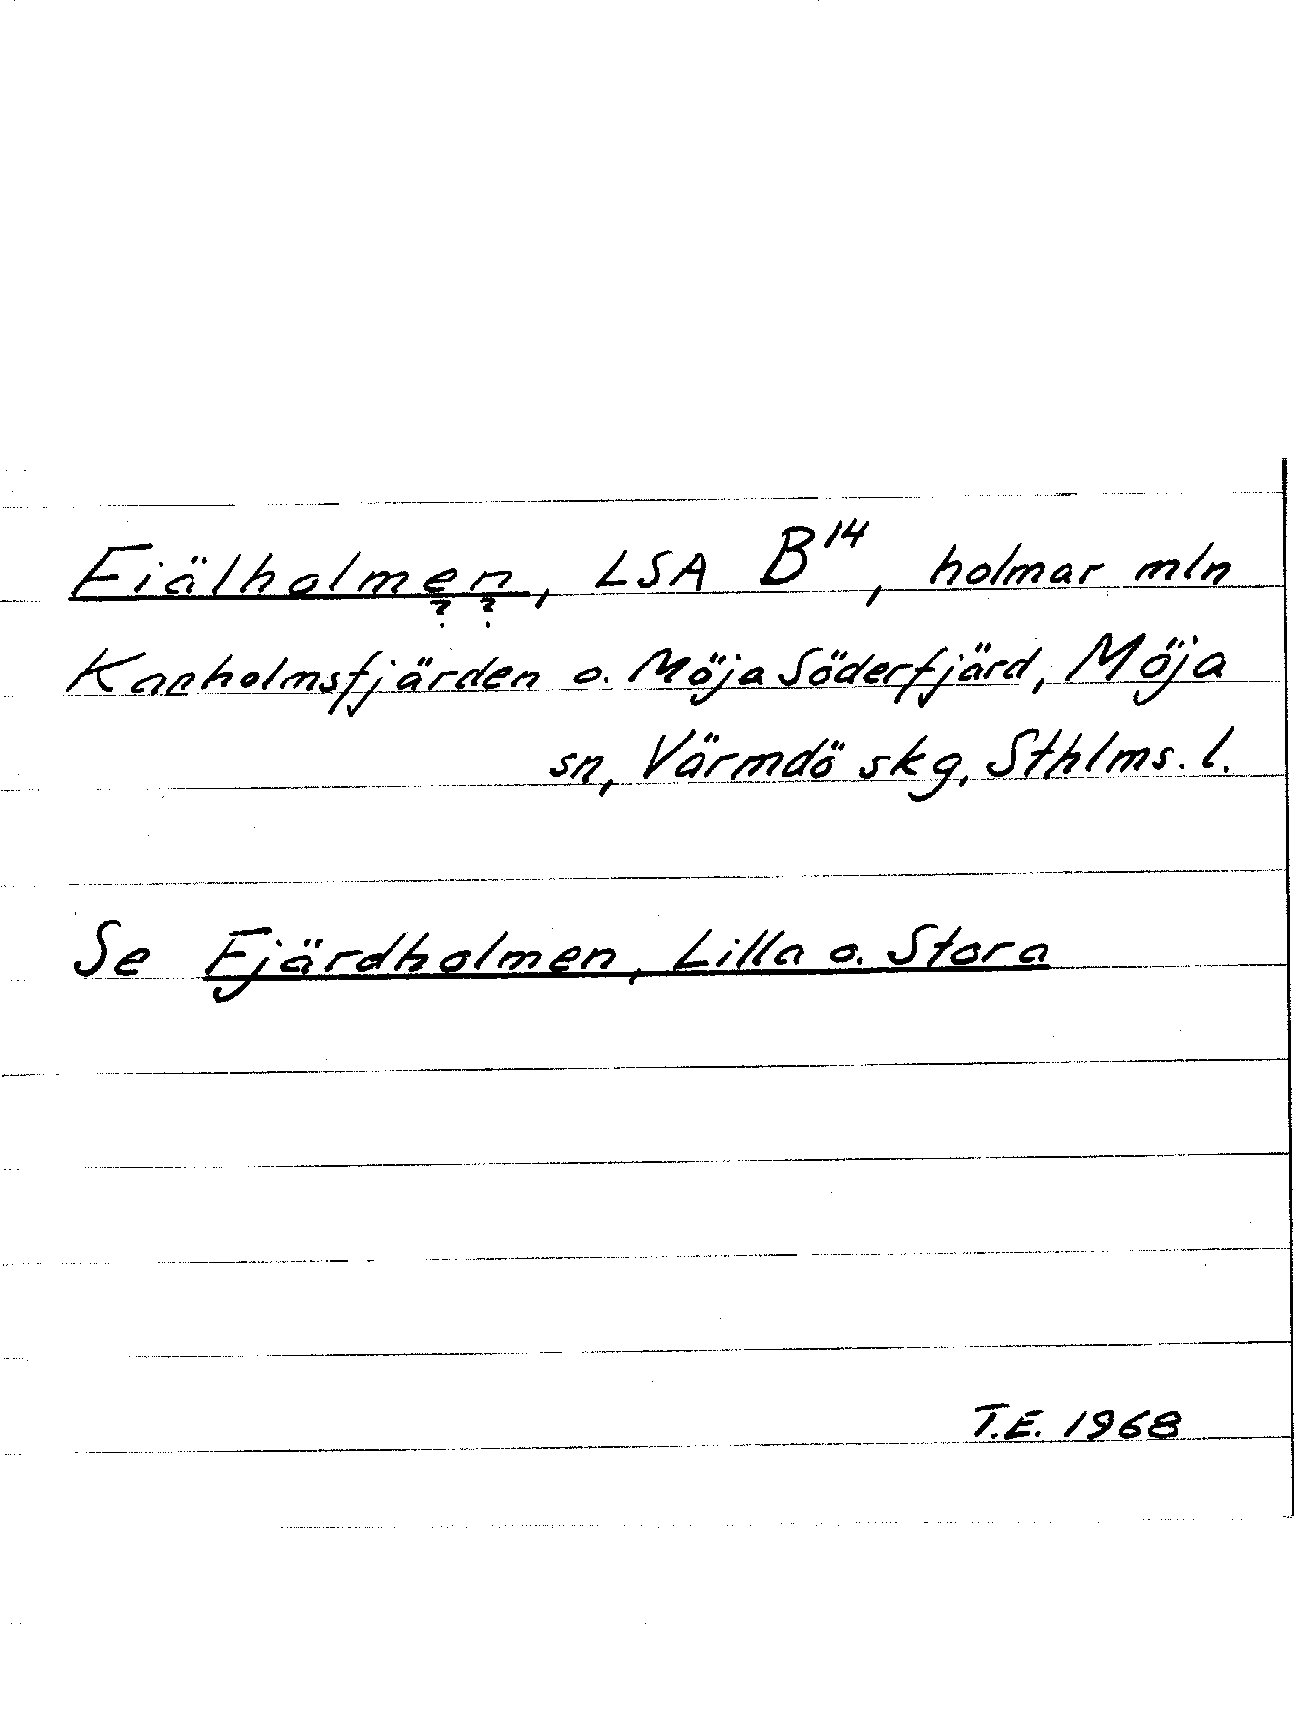 Fiälholmen, LSA B¹⁴, holmar mln
? ?
Kanholmsfjärden o. Möja Söderfjärd, Möja
sn, Värmdö skg, Sthlms. l.
Se Fjärdholmen, Lilla o. Stora
T.E. 1968